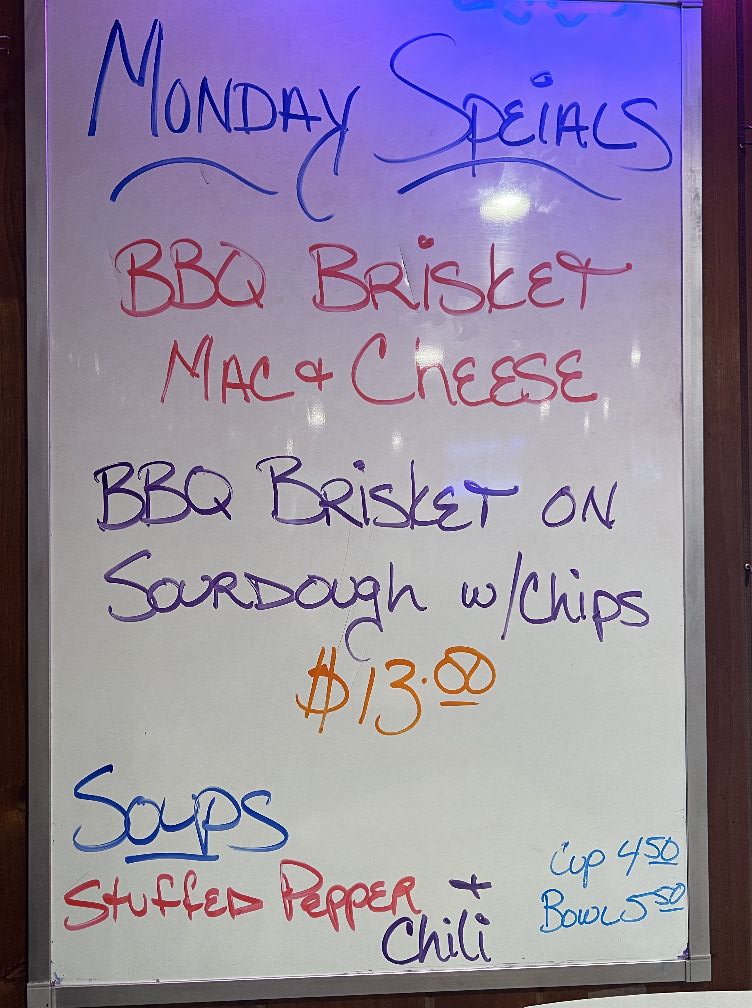 MONDAY SPEIALS
BBQ BRISKET
MAC & CHEESE
BBQ BRISKET ON
SOURDOUGH w/Chips
$13.00
SOUPS
STUFFED PEPPER +
Chili
Cup 4 50
BOWL 5 50